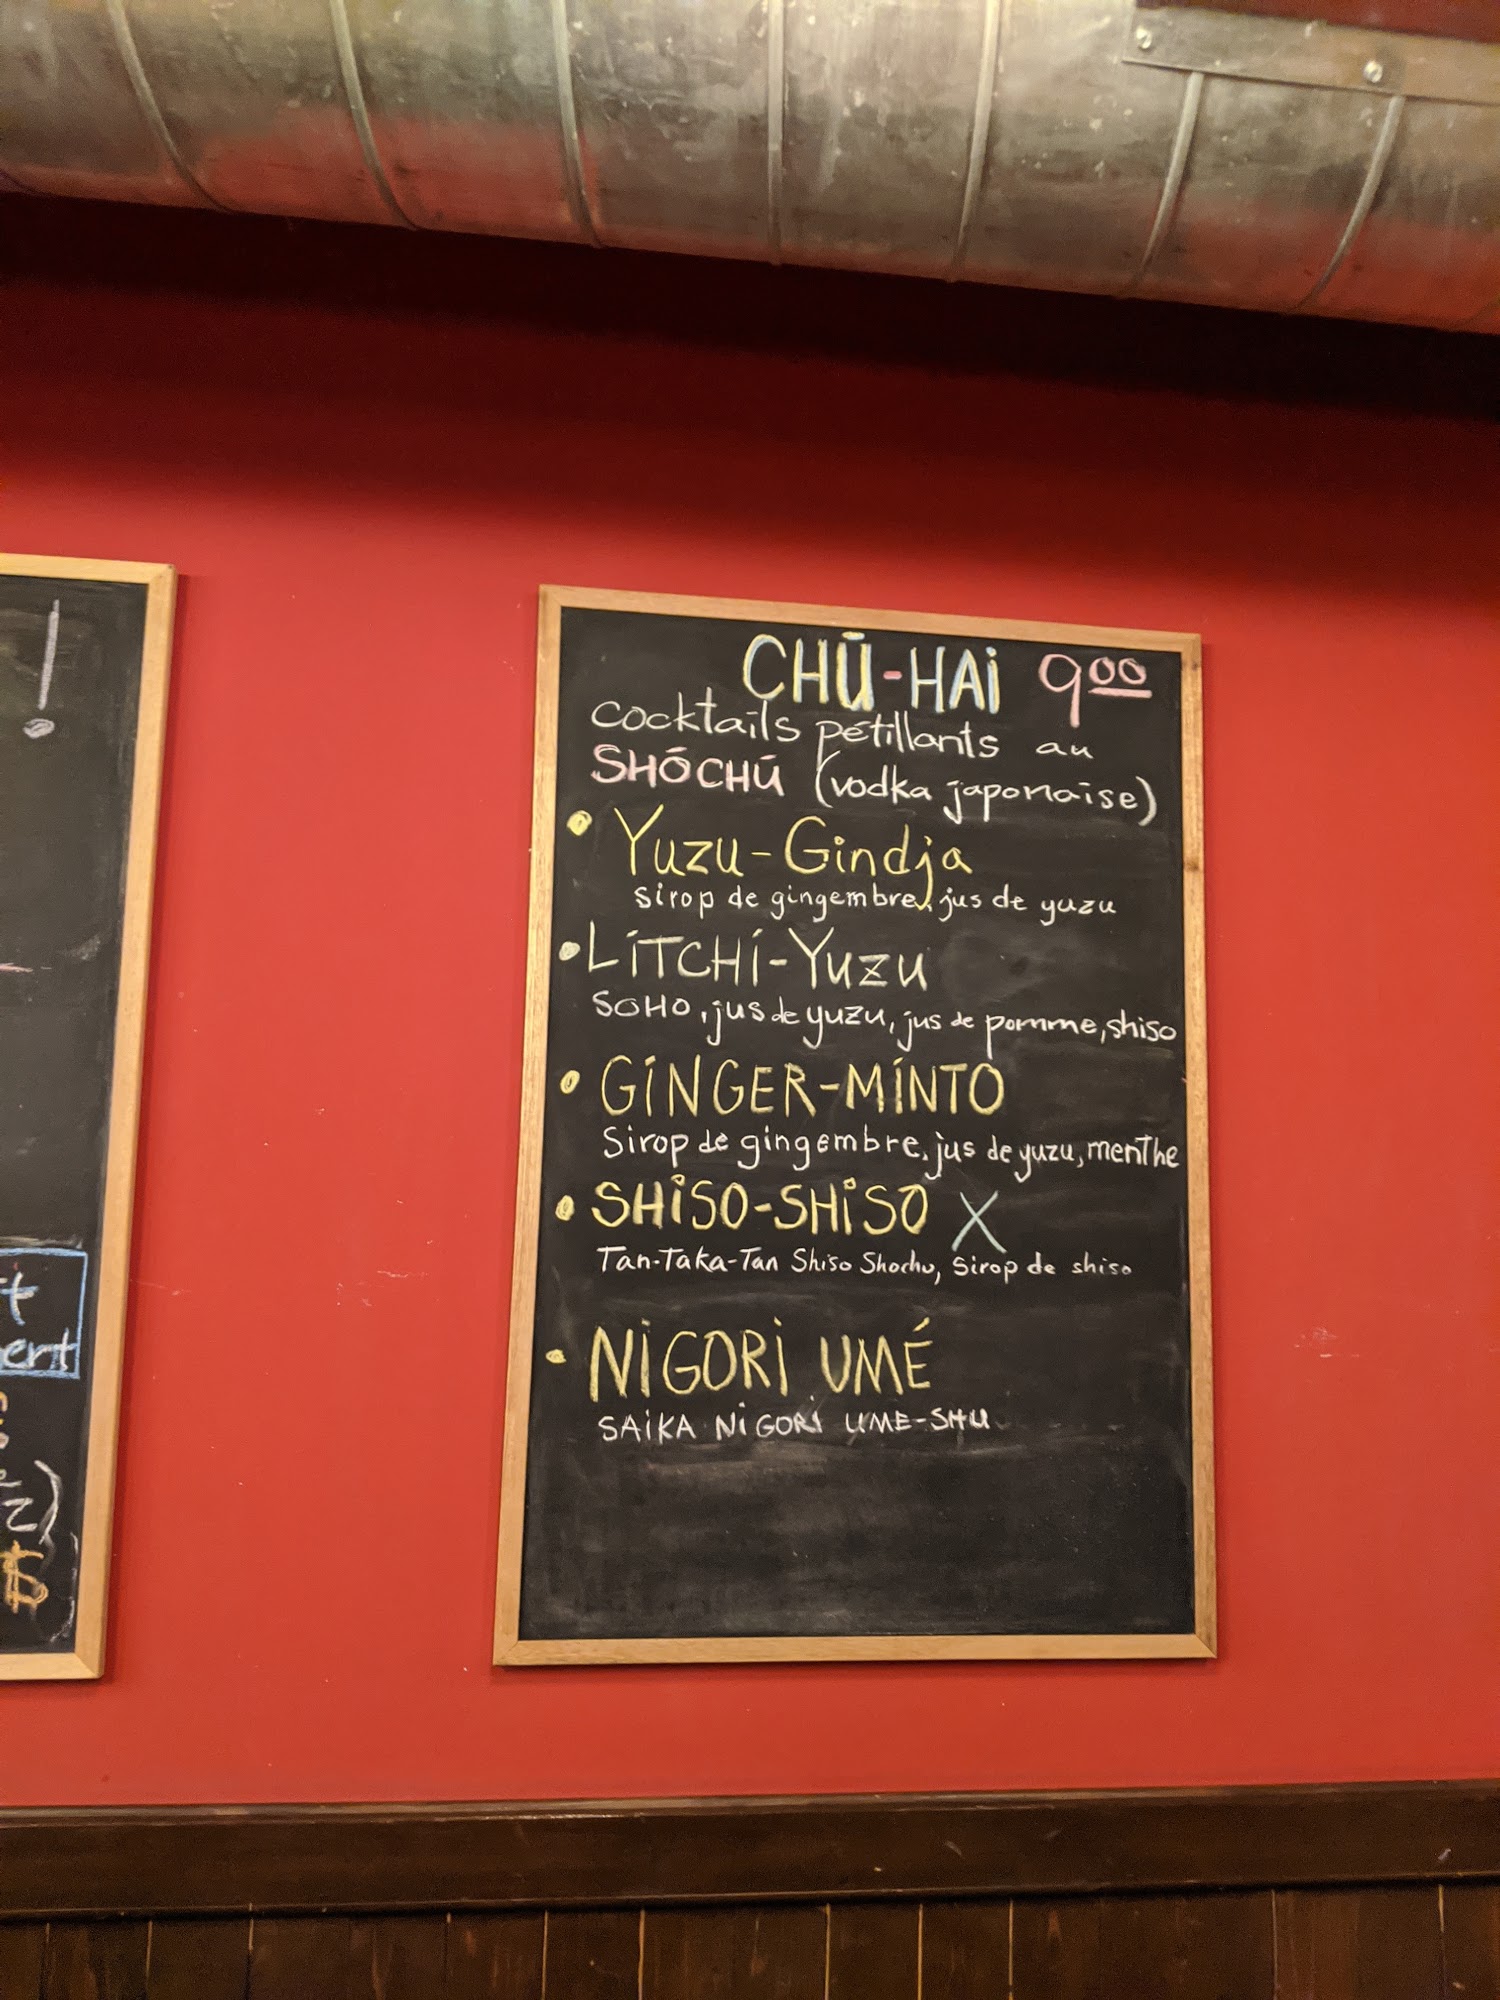 !
t
ert
$
CHŪ-HAi 9⁰⁰
cocktails pétillants au
SHÓCHÚ (vodka japonaise)
• Yuzu-Gindja
sirop de gingembre, jus de yuzu
• LíTCHí-YUZU
SOHO, jus de yuzu, jus de pomme, shiso
• GiNGER-MíNTO
Sirop de gingembre, jus de yuzu, menthe
• SHiSO-SHiSO X
Tan-Taka-Tan Shiso Shochu, sirop de shiso
• NiGORi UMÉ
SAiKA NiGORi UME-SHU